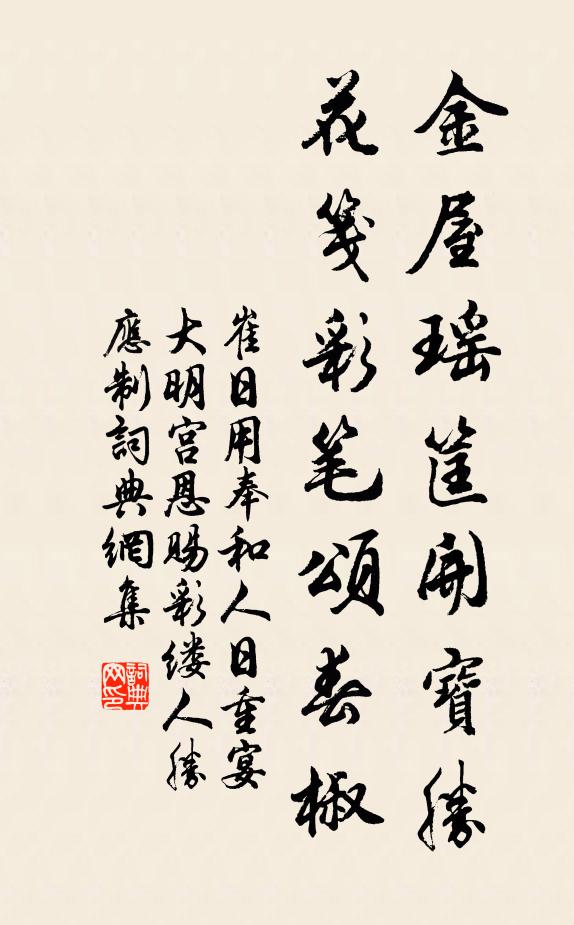 金屋瑶筐開寶勝
花箋彩笔頌春椒
崔日用奉和人日重宴
大明宫恩賜彩缕人勝
應制詞典網集
詞典网印